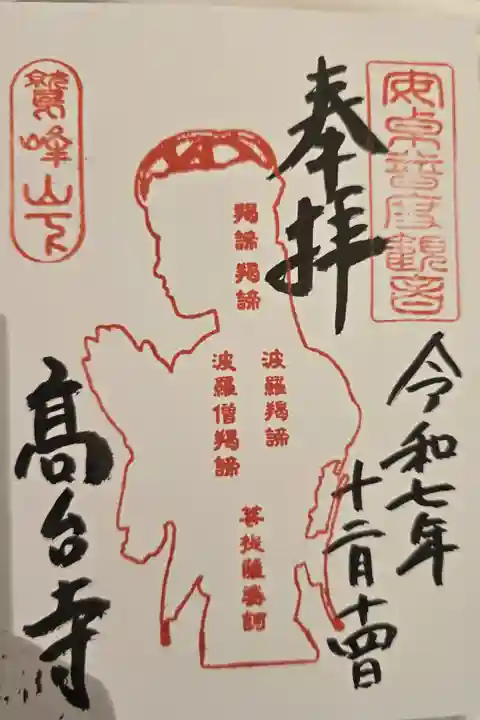 安卓普度観音
奉拝
令和七年
十二月十四日
羯諦羯諦
波羅羯諦
波羅僧羯諦
菩提薩婆訶
鷲峰山下
高台寺